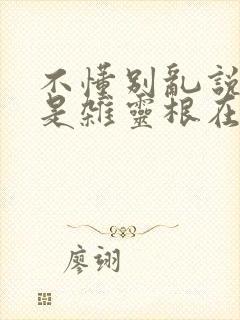 不懂別亂說
是雜靈根在
廖翊